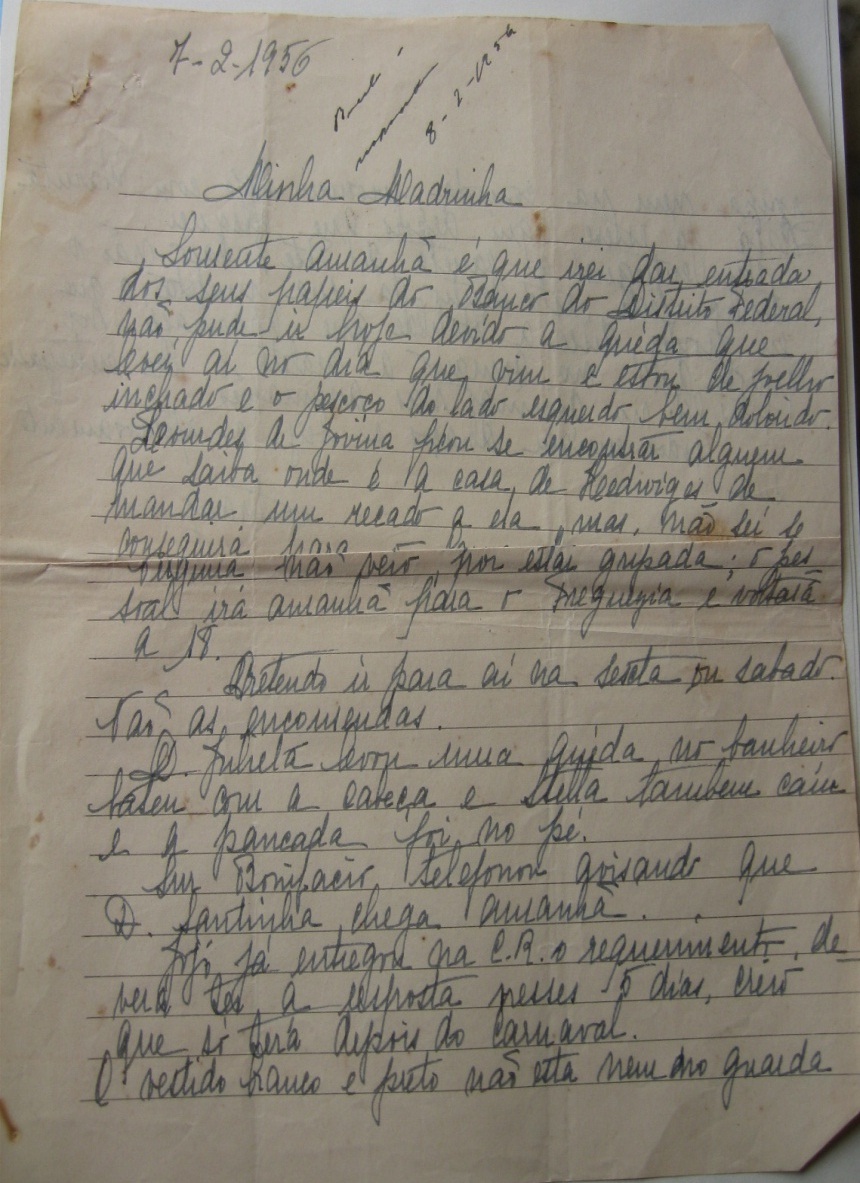 7-2-1956
8-2-1956
Minha Madrinha
Somente amanhã é que irei dar entrada
dos seus papeis do Banco do Distrito Federal,
não pude ir hoje devido a quéda que
levei aí no dia que vim e estou de joelho
inchado e o pescoço do lado esquerdo bem dolorido.
Lourdes de Jovina ficou se encontrar alguem
que saiba onde é a casa de Hedwiges de
mandar um recado a ela, mas, não sei se
conseguirá para
Virginia não veio por estar gripada; o pes
soal irá amanhã para o Freguezia e voltará
a 18.
Pretendo ir para aí na sexta ou sabado.
Vão as encomendas.
D. Julieta levou uma quéda no banheiro
bateu com a cabeça e Stella tambem caiu
e a pancada foi no pé.
Snr Bonifacio telefonou avisando que
D. Santinha chega amanhã.
já entregou na C.R. o requerimento, de-
verá ter a resposta nesses 5 dias, creio
que só será depois do carnaval.
O vestido branco e preto não está nem no guarda